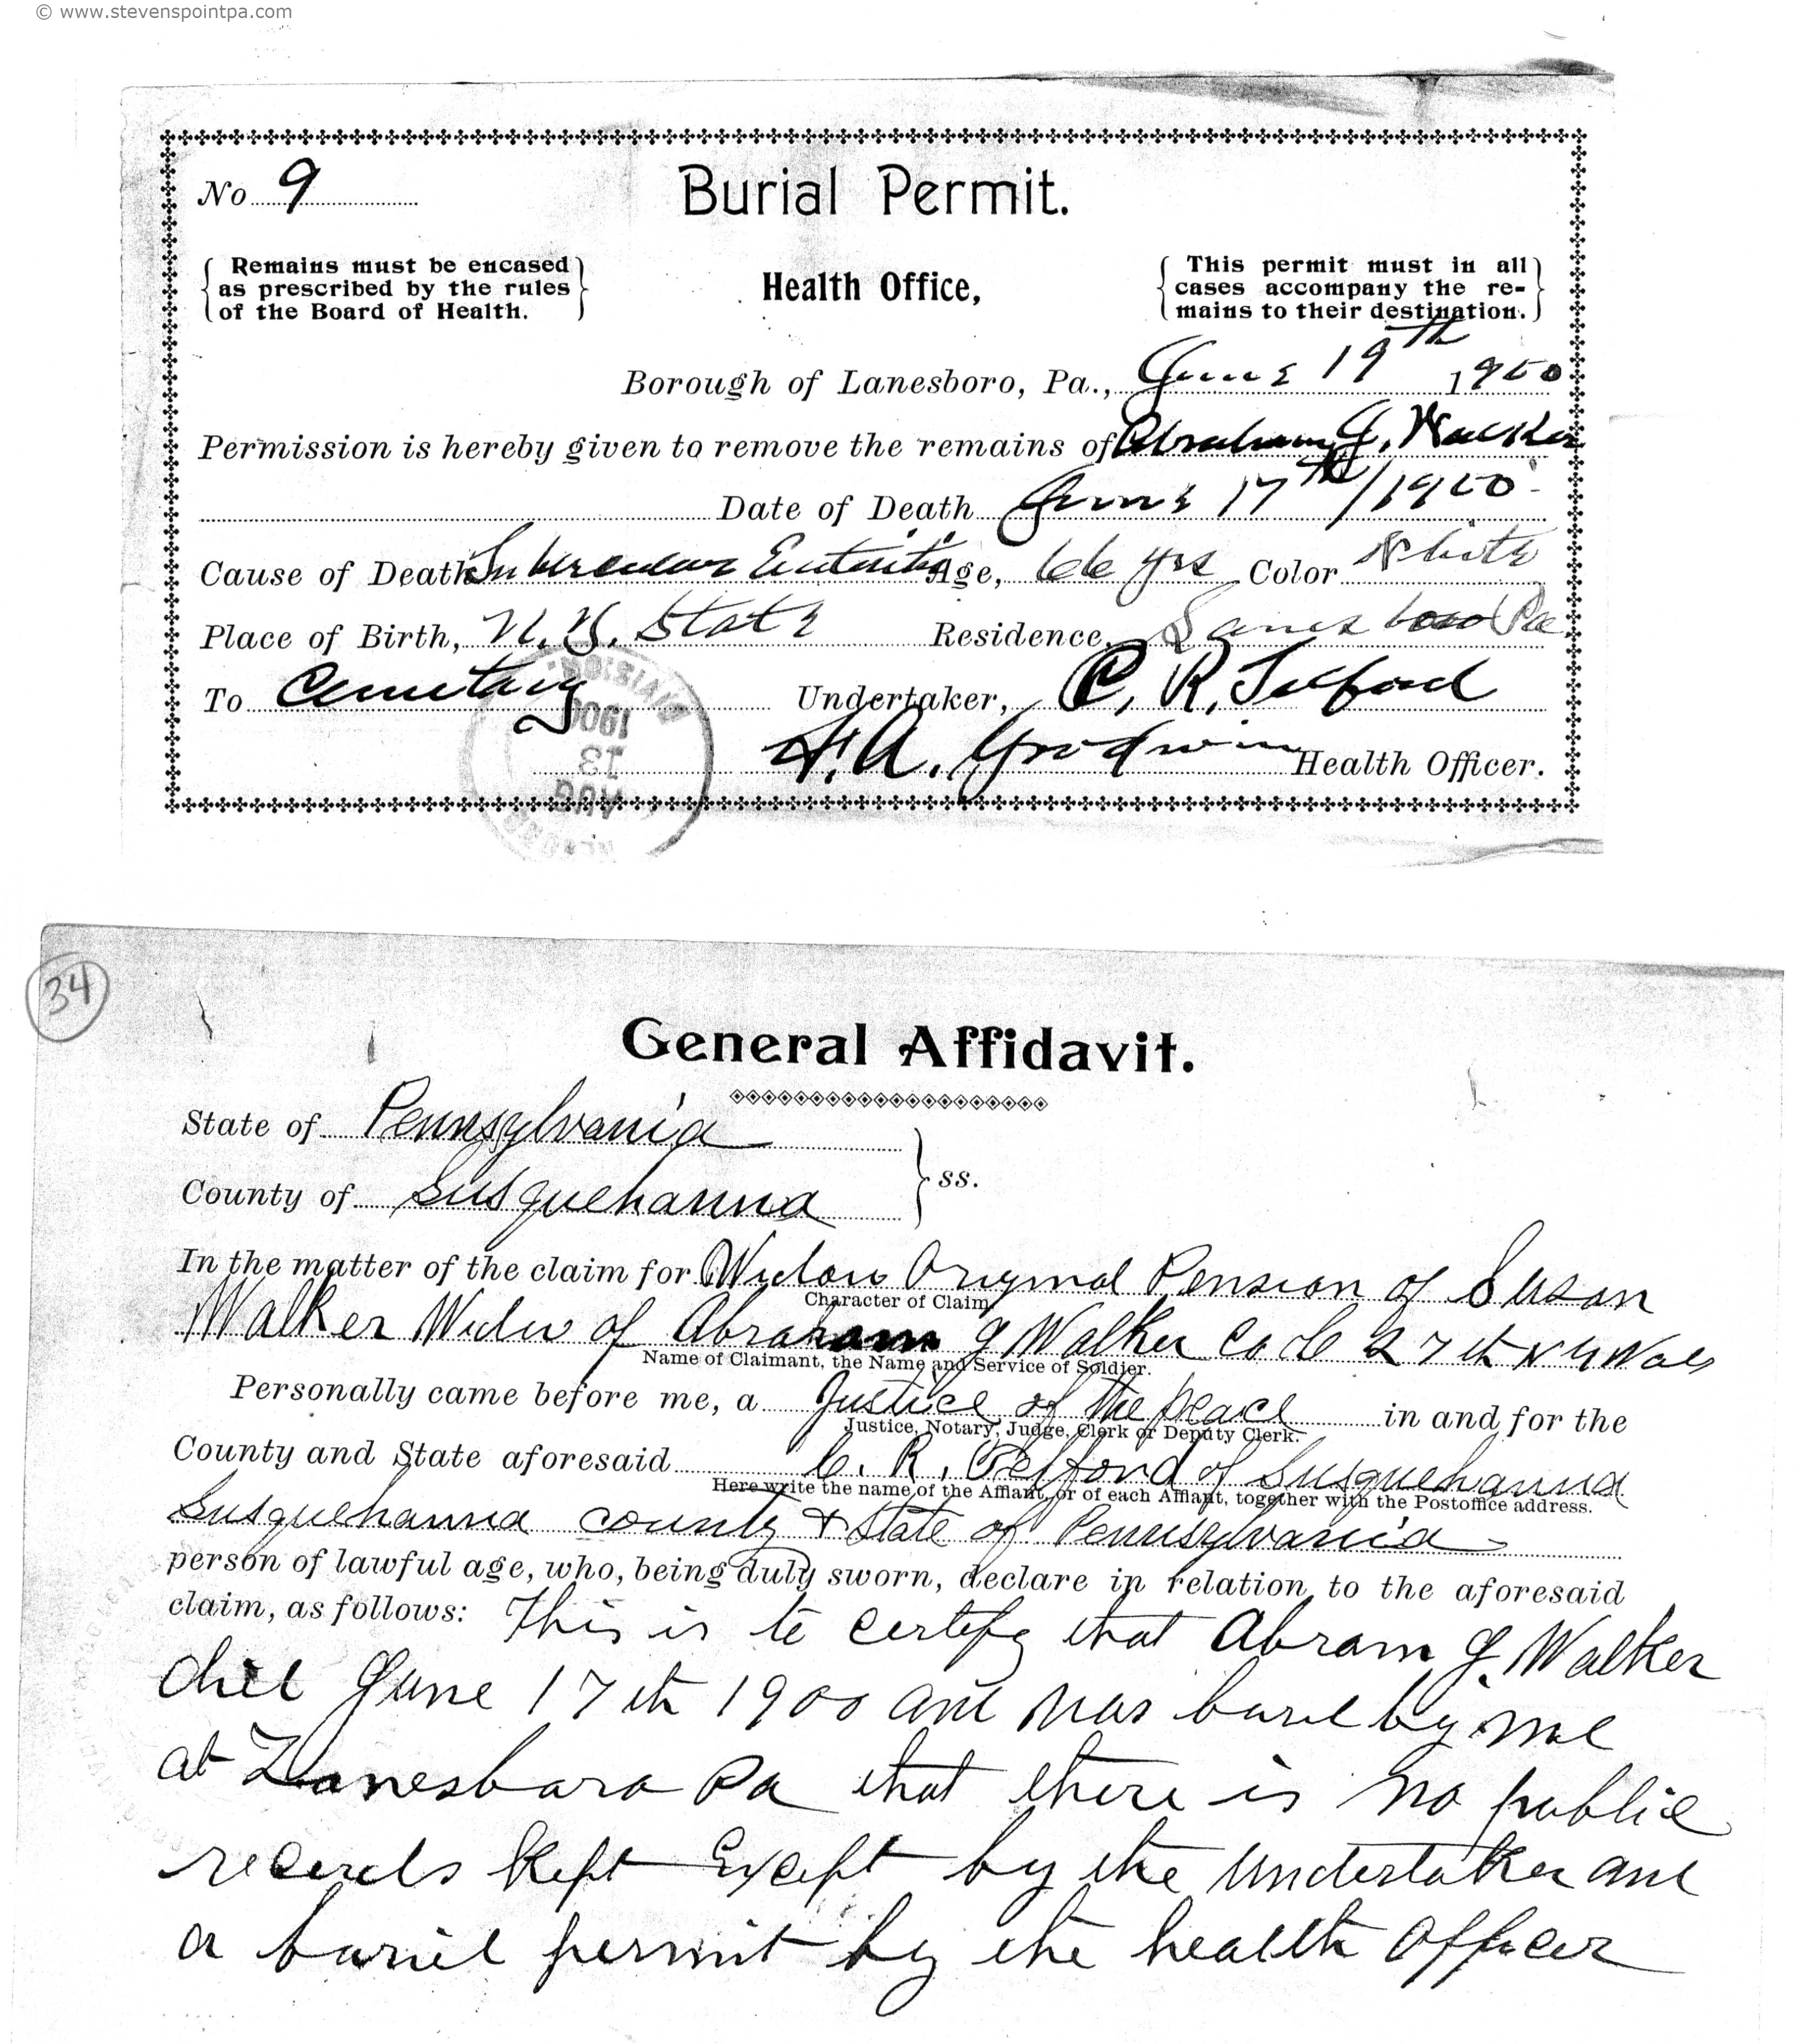 © www.stevenspointpa.com
No 9
Burial Permit.
Remains must be encased
as prescribed by the rules
of the Board of Health.
Health Office,
This permit must in all
cases accompany the re-
mains to their destination.
Borough of Lanesboro, Pa., June 19th 1900
Permission is hereby given to remove the remains of Abraham J. Walker
Date of Death June 17th/1900
Cause of Death Tubercular Age, 66 yrs Color White
Place of Birth, N. Y. State Residence, Lanesboro Pa
To Cemetary Undertaker, C. R. Telford
H. A. Goodwin Health Officer.
1900
13
AUG
34
General Affidavit.
State of Pennsylvania
County of Susquehanna
ss.
In the matter of the claim for Widow Original Pension of Susan
Character of Claim
Walker Widw of Abraham J Walker Co 27th N Y Vols
Name of Claimant, the Name and Service of Soldier.
Personally came before me, a Justice of the peace in and for the
Justice, Notary, Judge, Clerk or Deputy Clerk.
County and State aforesaid C. R. Telford of Susquehanna
Here write the name of the Affiant, or of each Affiant, together with the Postoffice address.
Susquehanna county & State of Pennsylvania
person of lawful age, who, being duly sworn, declare in relation to the aforesaid
claim, as follows: This is to certify that Abram J. Walker
died June 17th 1900 and was bured by me
at Lanesboro Pa that there is no public
records kept Except by the undertaker and
a buriel permit by the health officer